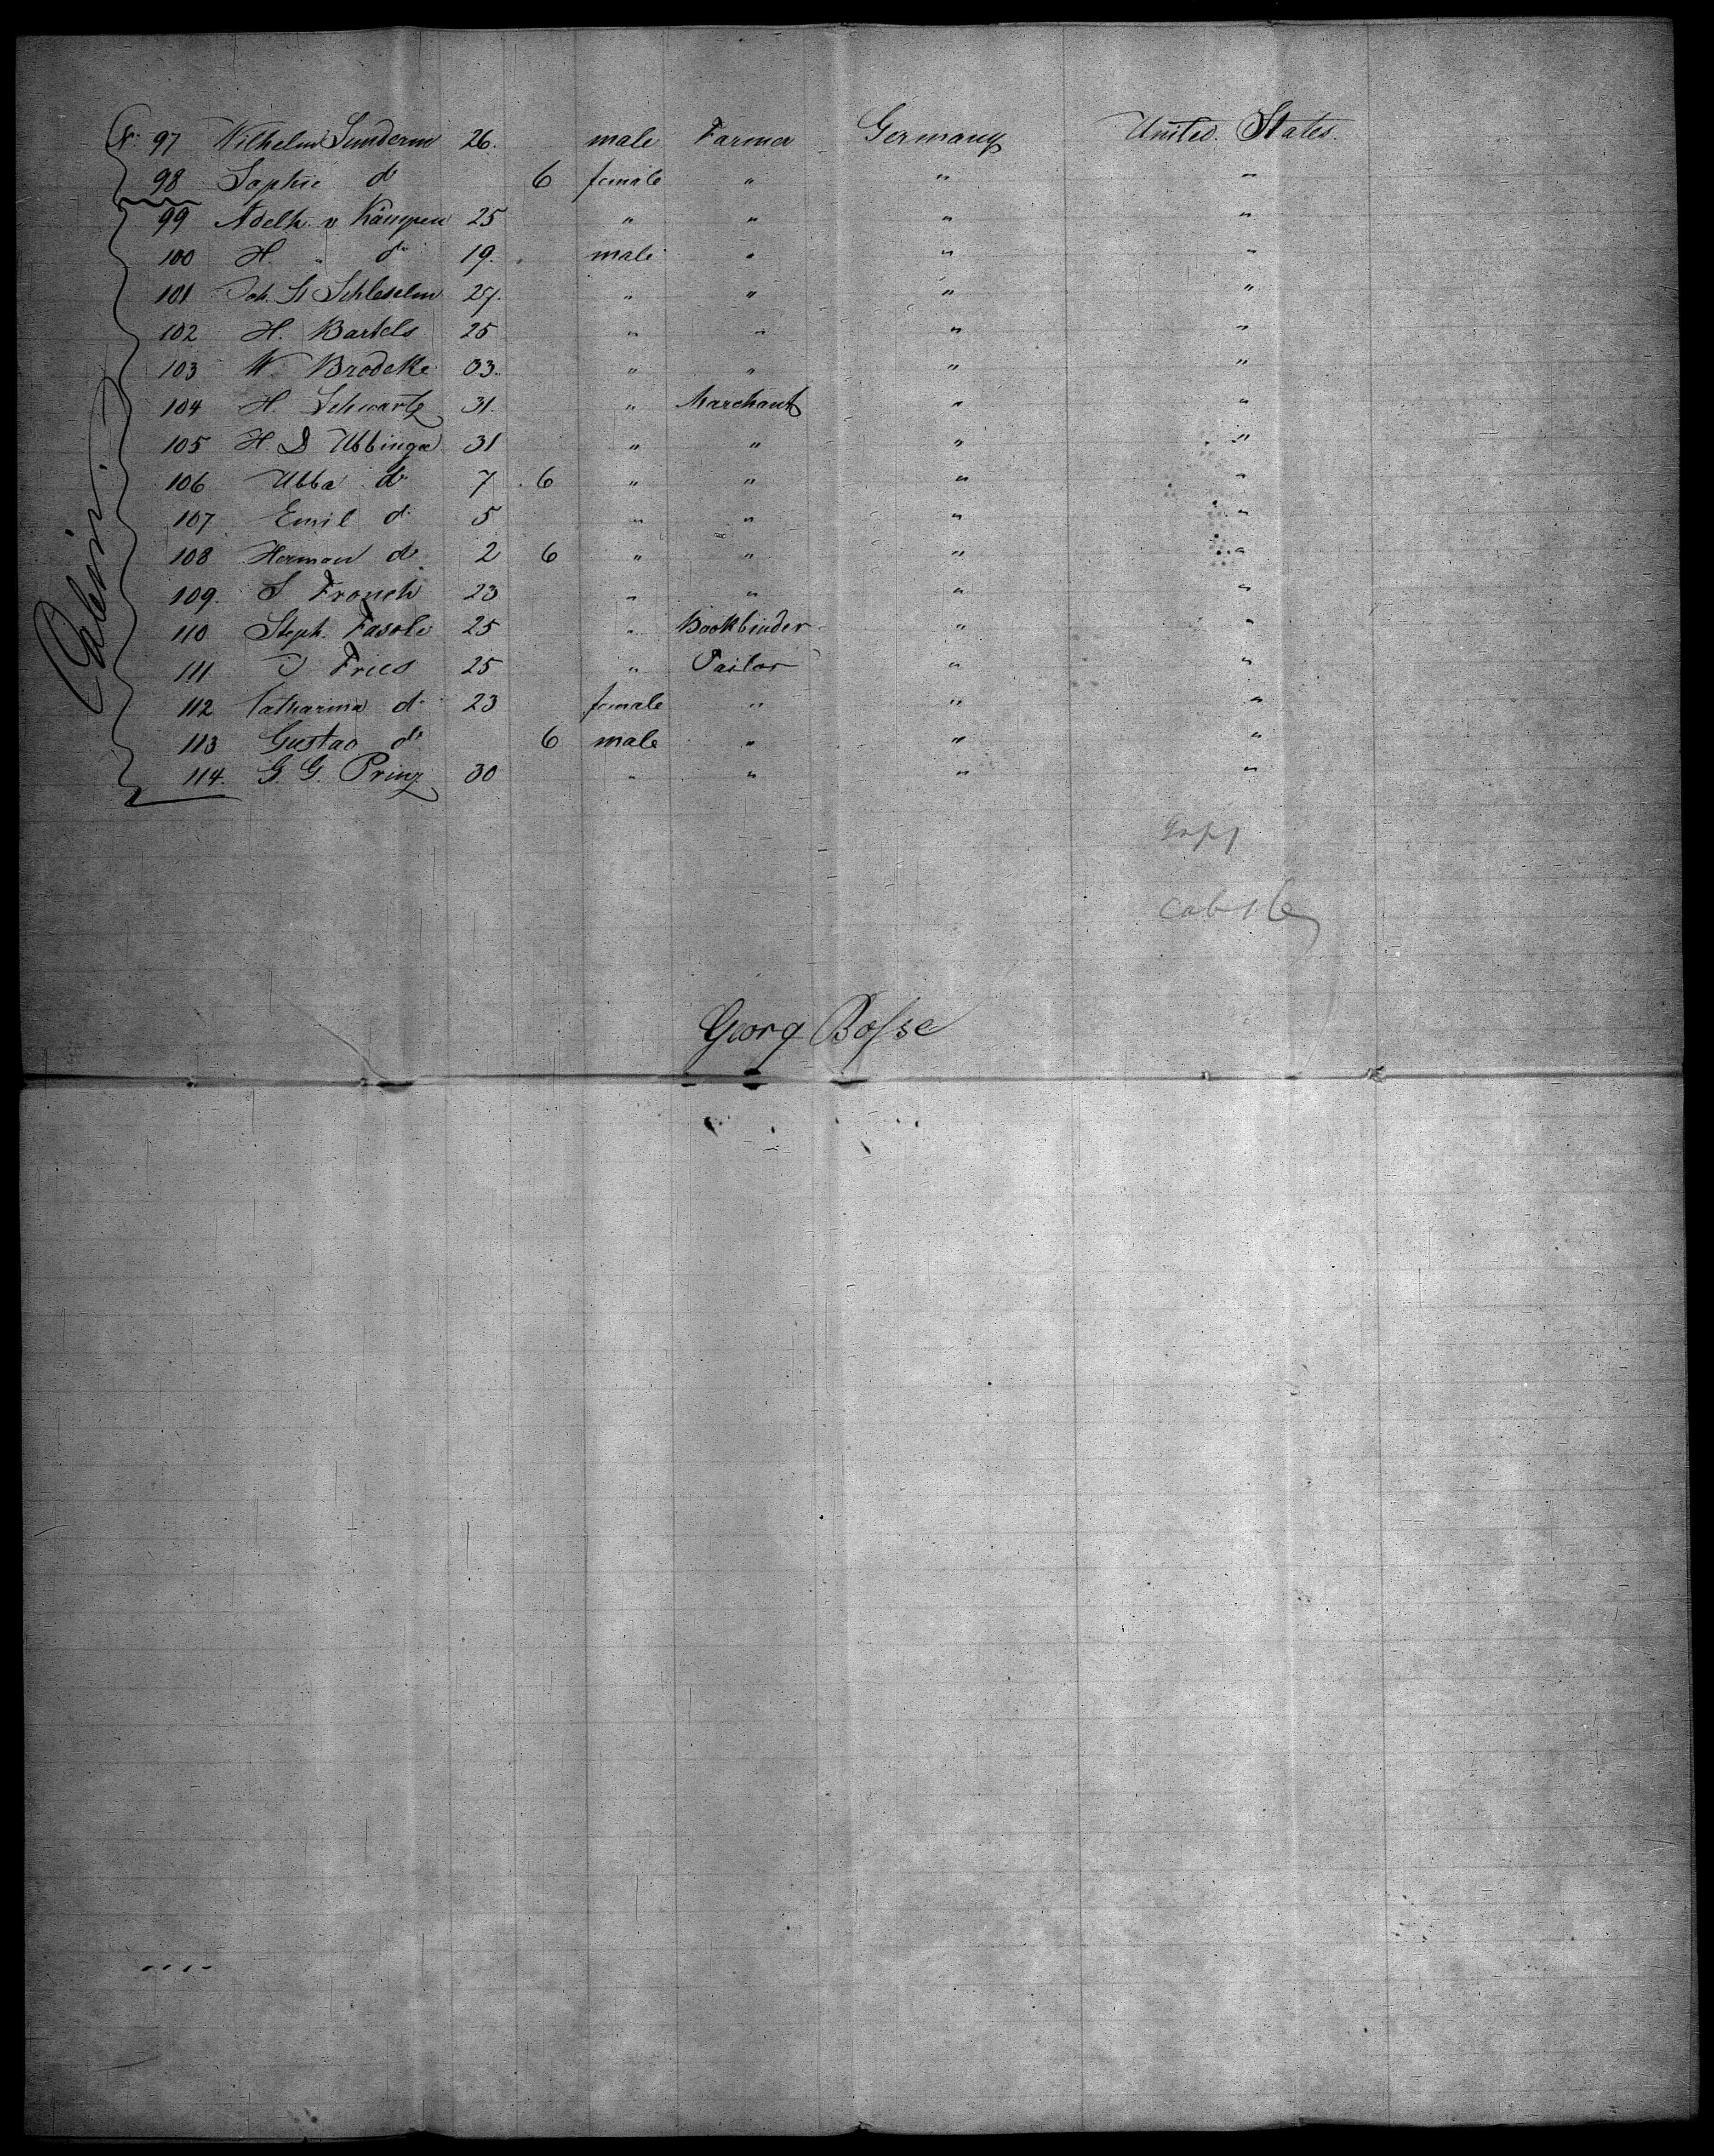 No. 97 Wilhelm Sunderm 26. male Farmer Germany United States.
98 Sophie do 6 female " " "
99 Adelh. v Kämpen 25 " " " "
100 H. " do 19. male " " "
101 Joh. H Schleselm 27. " " " "
102 H. Bartels 25 " " " "
103 W. Brodeke 33. " " " "
104 H. Schwartz 31. " Marchant " "
105 H. D Ubbinga 31 " " " "
106 Ubba do 7 6 " " " "
107 Emil do 5 " " " "
108 Herman do 2 6 " " " "
109. S Fronch 23 " " " "
110 Steph. Fasole 25 " Bookbinder " "
111 J Fries 25 " Tailor " "
112 Catharina do 23 female " " "
113 Gustav do 6 male " " "
114. G. G. Prinz 30 " " " "
Cabin
Cab 16
Georg Bosse